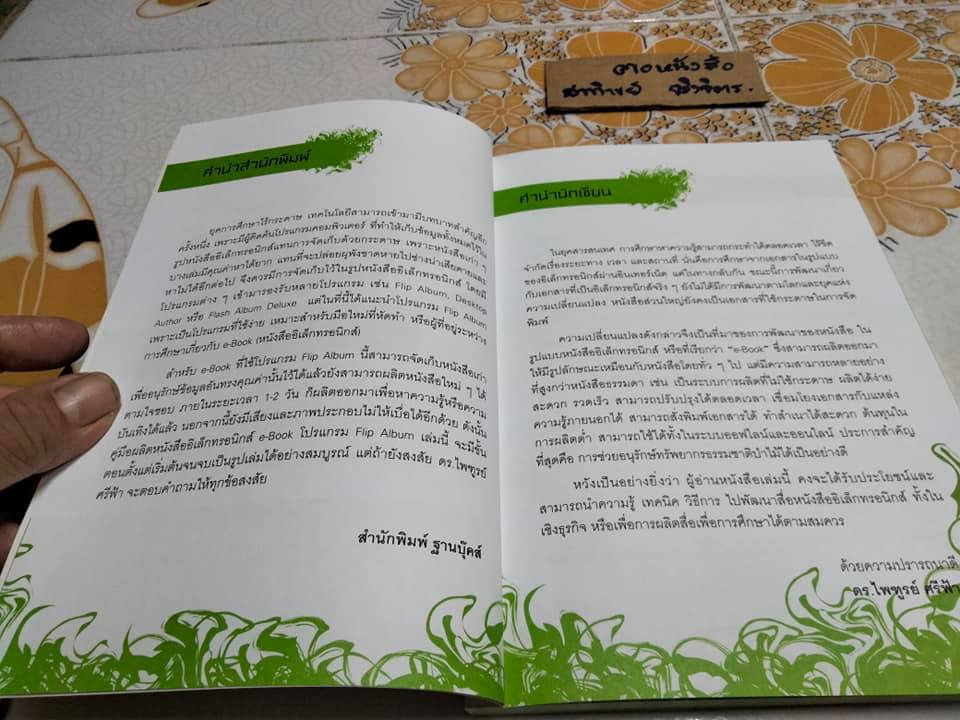 ตอหนังสือ
คำนำสำนักพิมพ์
ยุคการศึกษาไร้กระดาษ เทคโนโลยีสามารถเข้ามามีบทบาทสำคัญอีก
ครั้งหนึ่ง เพราะมีผู้คิดค้นโปรแกรมคอมพิวเตอร์ ที่ทำให้เก็บข้อมูลทั้งหมดไว้ใน
รูปหนังสืออิเล็กทรอนิกส์แทนการจัดเก็บด้วยกระดาษ เพราะหนังสือเก่า ๆ
บางเล่มมีคุณค่าหาได้ยาก แทนที่จะปล่อยผุพังขาดหายไปช่างน่าเสียดายและ
หาไม่ได้อีกต่อไป จึงควรมีการจัดเก็บไว้ในรูปหนังสืออิเล็กทรอนิกส์ โดยมี
โปรแกรมต่าง ๆ เข้ามารองรับหลายโปรแกรม เช่น Flip Album, Desktop
Author หรือ Flash Album Deluxe แต่ในที่นี้ได้แนะนำโปรแกรม Flip Album
เพราะเป็นโปรแกรมที่ใช้ง่าย เหมาะสำหรับมือใหม่ที่หัดทำ หรือผู้ที่อยู่ระหว่าง
การศึกษาเกี่ยวกับ e-Book (หนังสืออิเล็กทรอนิกส์)
สำหรับ e-Book ที่ใช้โปรแกรม Flip Album นี้สามารถจัดเก็บหนังสือเก่า
เพื่ออนุรักษ์ข้อมูลอันทรงคุณค่านั้นไว้ได้แล้วยังสามารถผลิตหนังสือใหม่ ๆ ได้
ตามใจชอบ ภายในระยะเวลา 1-2 วัน ก็ผลิตออกมาเพื่อหาความรู้หรือความ
บันเทิงได้แล้ว นอกจากนี้ยังมีเสียงและภาพประกอบไม่ให้เบื่อได้อีกด้วย ดังนั้น
คู่มือผลิตหนังสืออิเล็กทรอนิกส์ e-Book โปรแกรม Flip Album เล่มนี้ จะมีขั้น
ตอนตั้งแต่เริ่มต้นจนจบเป็นรูปเล่มได้อย่างสมบูรณ์ แต่ถ้ายังสงสัย ดร.ไพฑูรย์
ศรีฟ้า จะตอบคำถามให้ทุกข้อสงสัย
สำนักพิมพ์ ฐานบุ๊คส์
คำนำนักเขียน
ในยุคสารสนเทศ การศึกษาหาความรู้สามารถกระทำได้ตลอดเวลา ไร้ขีด
จำกัดเรื่องระยะทาง เวลา และสถานที่ นั่นคือการศึกษาจากเอกสารในรูปแบบ
ของอิเล็กทรอนิกส์ผ่านอินเทอร์เน็ต แต่ในทางกลับกัน ขณะนี้การพัฒนาเกี่ยว
กับเอกสารที่เป็นอิเล็กทรอนิกส์จริง ๆ ยังไม่ได้มีการพัฒนาตามโลกและยุคแห่ง
ความเปลี่ยนแปลง หนังสือส่วนใหญ่ยังคงเป็นเอกสารที่ใช้กระดาษในการจัด
พิมพ์
ความเปลี่ยนแปลงดังกล่าวจึงเป็นที่มาของการพัฒนาของหนังสือ ใน
รูปแบบหนังสืออิเล็กทรอนิกส์ หรือที่เรียกว่า "e-Book" ซึ่งสามารถผลิตออกมา
ให้มีรูปลักษณะเหมือนกับหนังสือโดยทั่ว ๆ ไป แต่มีความสามารถหลายอย่าง
ที่สูงกว่าหนังสือธรรมดา เช่น เป็นระบบการผลิตที่ไม่ใช้กระดาษ ผลิตได้ง่าย
สะดวก รวดเร็ว สามารถปรับปรุงได้ตลอดเวลา เชื่อมโยงเอกสารกับแหล่ง
ความรู้ภายนอกได้ สามารถสั่งพิมพ์เอกสารได้ ทำสำเนาได้สะดวก ต้นทุนใน
การผลิตต่ำ สามารถใช้ได้ทั้งในระบบออฟไลน์และออนไลน์ ประการสำคัญ
ที่สุดคือ การช่วยอนุรักษ์ทรัพยากรธรรมชาติป่าไม้ได้เป็นอย่างดี
หวังเป็นอย่างยิ่งว่า ผู้อ่านหนังสือเล่มนี้ คงจะได้รับประโยชน์และ
สามารถนำความรู้ เทคนิค วิธีการ ไปพัฒนาสื่อหนังสืออิเล็กทรอนิกส์ ทั้งใน
เชิงธุรกิจ หรือเพื่อการผลิตสื่อเพื่อการศึกษาได้ตามสมควร
ด้วยความปรารถนาดี
ดร.ไพฑูรย์ ศรีฟ้า